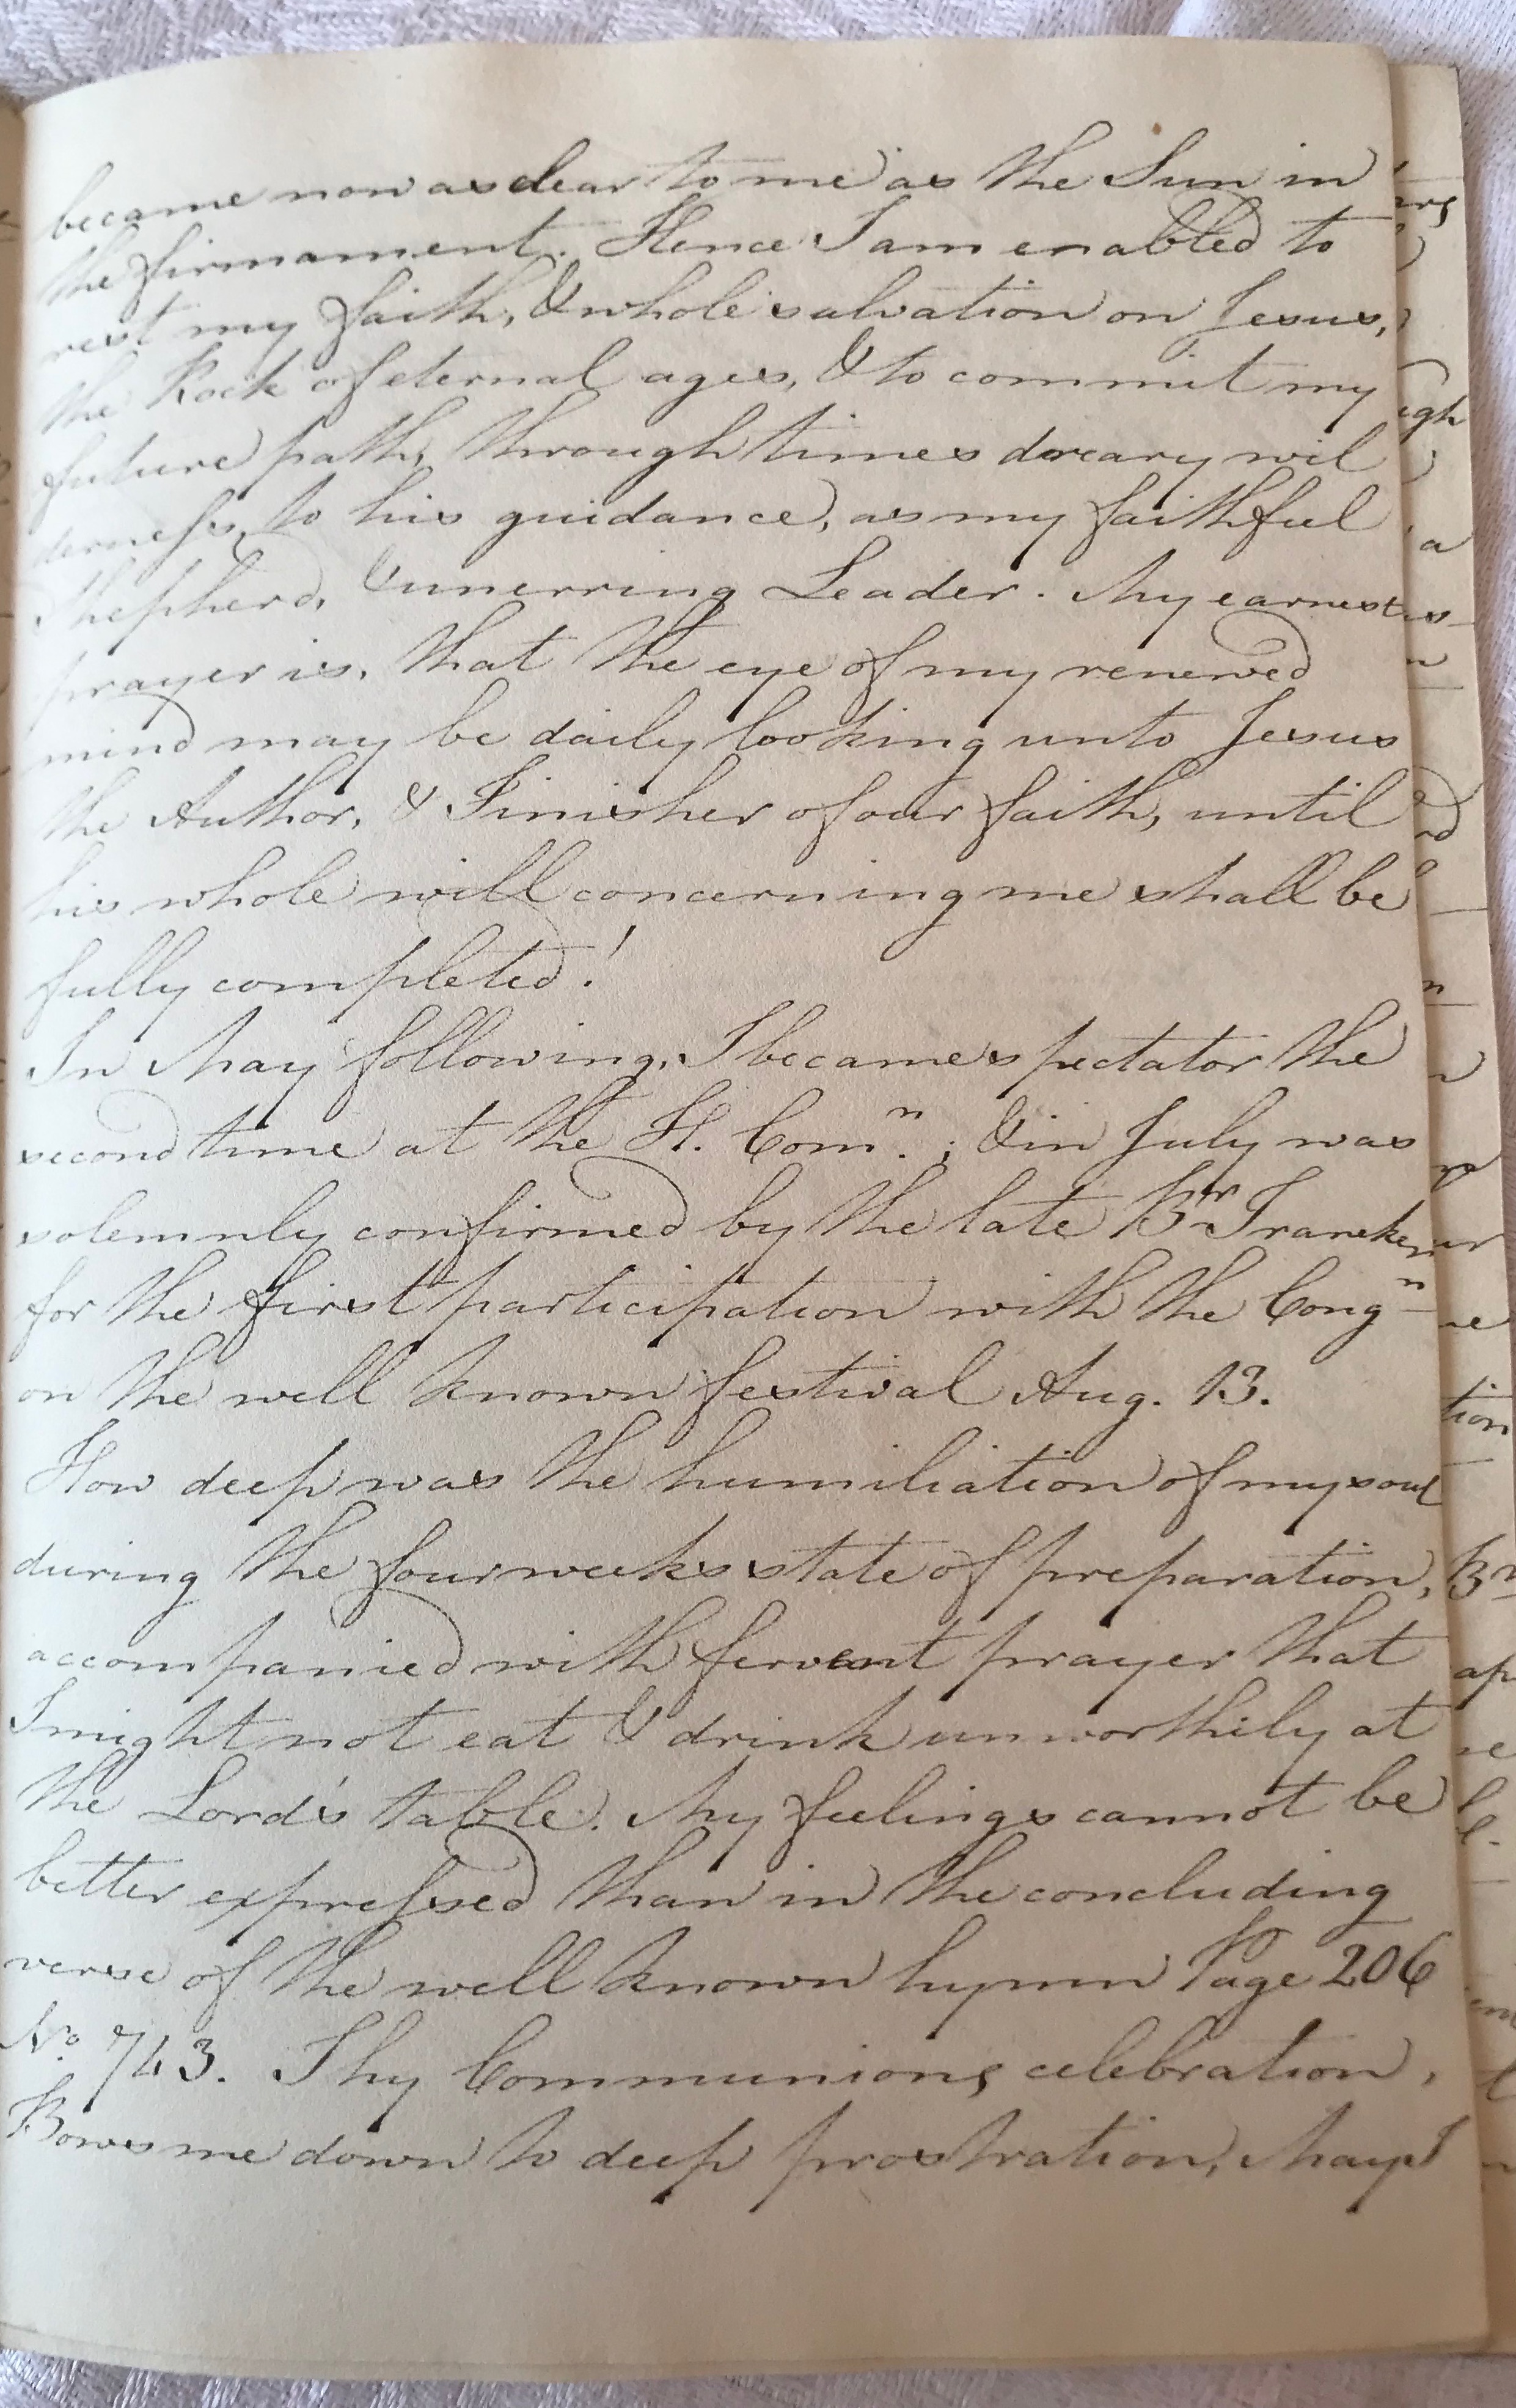 became now as clear to me as the Sun in
the firmament. Hence I am enabled to
rest my faith, & whole salvation on Jesus,
the Rock of eternal ages, & to commit my
future path, through times dreary wil
derness, to his guidance, as my faithful
Shepherd, & unerring Leader. My earnest
prayer is, that the eye of my renewed
mind may be daily looking unto Jesus
the Author, & Finisher of our faith, until
his whole will concerning me shall be
fully completed!
In May following, I became spectator the
second time at the H. Comn.; & in July was
solemnly confirmed by the late Br
for the first participation with the Congn
on the well known festival Aug. 13.
How deep was the humiliation of my soul
during the four weeks state of preparation,
accompanied with fervent prayer that
I might not eat & drink unworthily at
the Lord's table. My feelings cannot be
better expressed than in the concluding
verse of the well known hymn Page 206
No. 743. Thy Communions celebration,
Bows me down to deep prostration, May